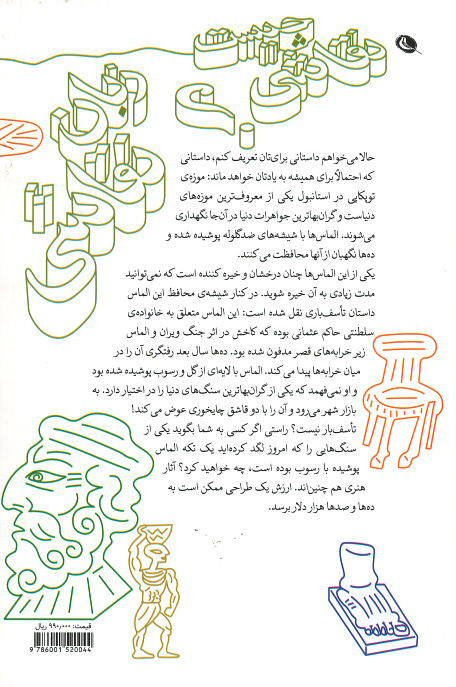 چیست
نقاشی؟
زبان
نقاشی
حالا می‌خواهم داستانی برای‌تان تعریف کنم، داستانی
که احتمالاً برای همیشه به یادتان خواهد ماند: موزه‌ی
توپکاپی در استانبول یکی از معروف‌ترین موزه‌های
دنیاست و گران‌بهاترین جواهرات دنیا در آن‌جا نگهداری
می‌شوند. الماس‌ها با شیشه‌های ضدگلوله پوشیده شده و
ده‌ها نگهبان از آنها محافظت می‌کنند.
یکی از این الماس‌ها چنان درخشان و خیره کننده است که نمی‌توانید
مدت زیادی به آن خیره شوید. در کنار شیشه‌ی محافظ این الماس
داستان تأسف‌باری نقل شده است: این الماس متعلق به خانواده‌ی
سلطنتی حاکم عثمانی بوده که کاخش در اثر جنگ ویران و الماس
زیر خرابه‌های قصر مدفون شده بود. ده‌ها سال بعد رفتگری آن را در
میان خرابه‌ها پیدا می‌کند. الماس با لایه‌ای از گل و رسوب پوشیده شده بود
و او نمی‌فهمد که یکی از گران‌بهاترین سنگ‌های دنیا را در اختیار دارد. به
بازار شهر می‌رود و آن را با دو قاشق چایخوری عوض می‌کند!
تأسف‌بار نیست؟ راستی اگر کسی به شما بگوید یکی از
سنگ‌هایی را که امروز لگد کرده‌اید یک تکه الماس
پوشیده با رسوب بوده است، چه خواهید کرد؟ آثار
هنری هم چنین‌اند. ارزش یک طراحی ممکن است به
ده‌ها و صدها هزار دلار برسد.
قیمت: ۹۹۰٫۰۰۰ ریال
9 786001 520044